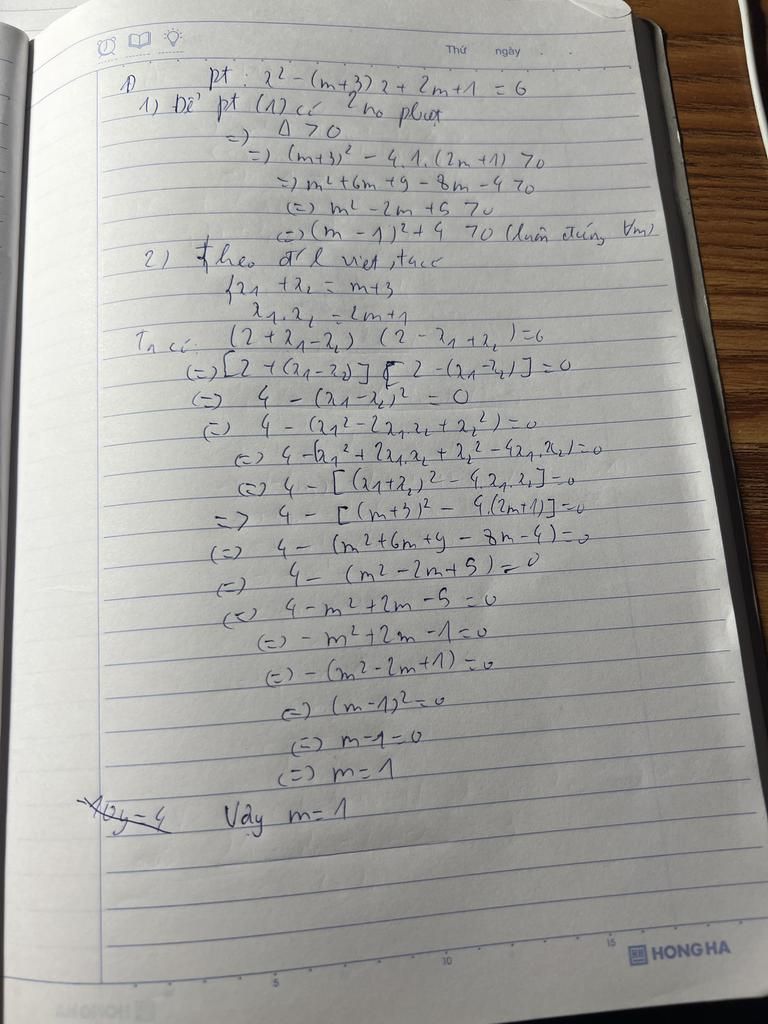 Thứ ngày
1) pt : x² - (m+3)x + 2m+1 = 0
1) Để pt (1) có 2 no pbiệt
=) Δ > 0
=) (m+3)² - 4.1.(2m+1) > 0
=) m² + 6m + 9 - 8m - 4 > 0
(=) m² - 2m + 5 > 0
(=) (m - 1)² + 4 > 0 (luôn đúng ∀m)
2) Theo đ/l viet, ta có
{x₁ + x₂ = m+3
x₁.x₂ = 2m+1
Ta có: (2 + x₁ - x₂) (2 - x₁ + x₂) = 0
(=) [2 + (x₁ - x₂)] [2 - (x₁ - x₂)] = 0
(=) 4 - (x₁ - x₂)² = 0
(=) 4 - (x₁² - 2x₁.x₂ + x₂²) = 0
(=) 4 - (x₁² + 2x₁.x₂ + x₂² - 4x₁.x₂) = 0
(=) 4 - [(x₁ + x₂)² - 4.x₁.x₂] = 0
=) 4 - [(m+3)² - 4.(2m+1)] = 0
(=) 4 - (m² + 6m + 9 - 8m - 4) = 0
(=) 4 - (m² - 2m + 5) = 0
(=) 4 - m² + 2m - 5 = 0
(=) - m² + 2m - 1 = 0
(=) - (m² - 2m + 1) = 0
(=) (m - 1)² = 0
(=) m - 1 = 0
(=) m = 1
Vậy m = 1
5 10 15
HONG HA